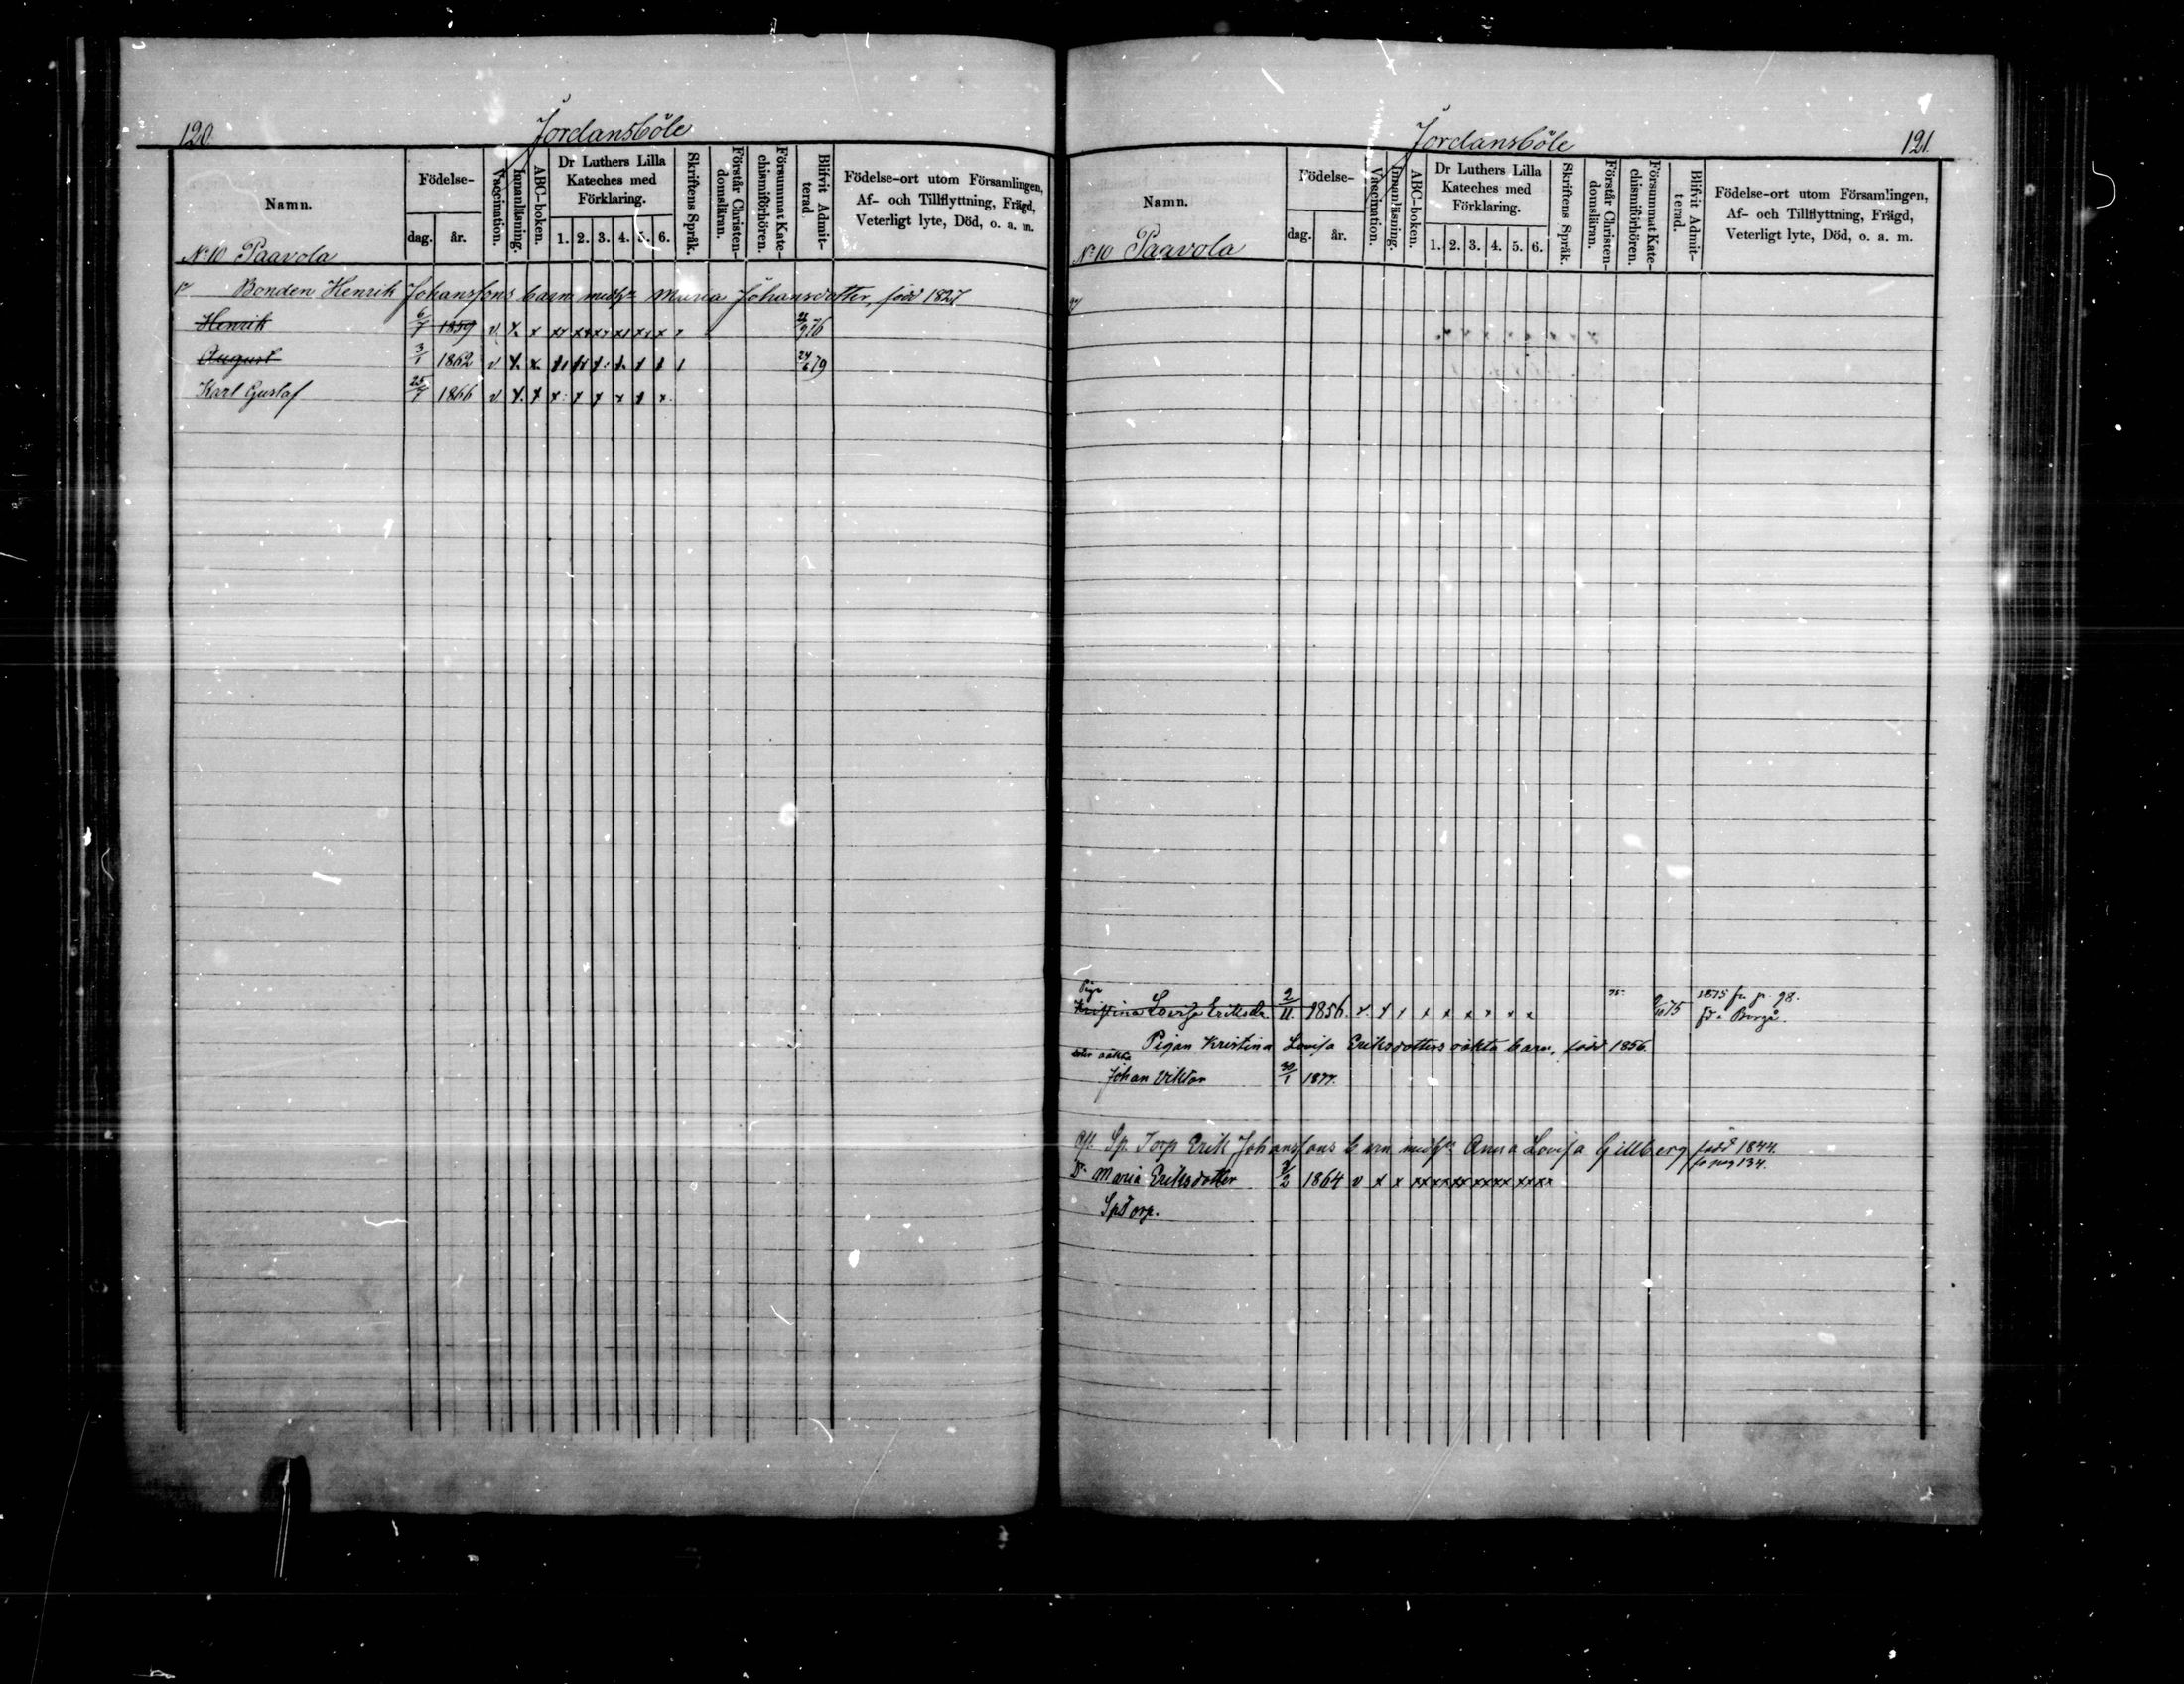 120.
Jordansböle
Namn.
Födelse-
dag. år.
Vaccination.
Innanläsning.
ABC-boken.
Dr Luthers Lilla
Kateches med
Förklaring.
1. 2. 3. 4. 5. 6.
Skriftens Språk.
Förstår Christen-
domsläran.
Försummat Kate-
chismiförhören.
Blifvit Admit-
terad
Födelse-ort utom Församlingen,
Af- och Tillflyttning, Frägd,
Veterligt lyte, Död, o. a. m.
No 10 Paavola
Bonden Henrik Johanssons barn med h. Maria Johansdotter, född 1827
Henrik 6/7 1859 v x x x x x x x x 9 76
August 3/1 1862 v x x 24/6 79
Karl Gustaf 25/7 1866 v x x x x x x x x
Jordansböle
121.
Namn.
Födelse-
dag. år.
Vaccination.
Innanläsning.
ABC-boken.
Dr Luthers Lilla
Kateches med
Förklaring.
1. 2. 3. 4. 5. 6.
Skriftens Språk.
Förstår Christen-
domsläran.
Försummat Kate-
chismiförhören.
Blifvit Admit-
terad.
Födelse-ort utom Församlingen,
Af- och Tillflyttning, Frägd,
Veterligt lyte, Död, o. a. m.
No 10 Paavola
Piga 1875 fr. p. 98.
Kristina Lovisa Eriksdr. 2/11 1856. v x x x x x x x x 75 fd. i Borgå.
Pigan Kristina Lovisa Eriksdotters oäkta barn, född 1856.
oäkta
Johan Viktor 30/1 1877.
Sp. Torp Erik Johanssons barn med h. Anna Lovisa Gillberg född 1844.
fr pag 134.
Dr Maria Eriksdotter 1864 v x x xx xx xx xx xx xx
Sp Torp.